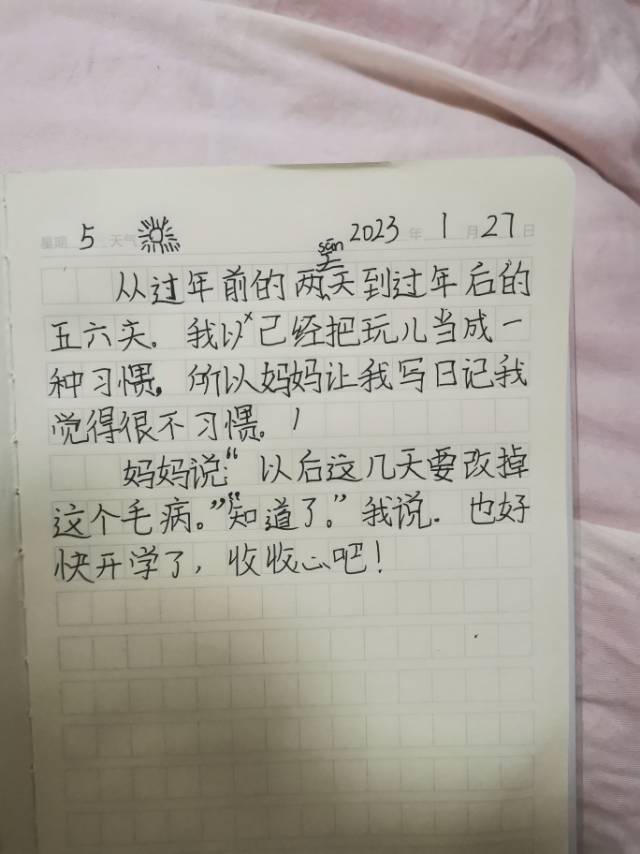 星期 5 天气 2023 年 1 月 27 日
sān
三
从过年前的两天到过年后的
五六天。我以已经把玩儿当成一
种习惯。所以妈妈让我写日记我
觉得很不习惯。
妈妈说:“以后这几天要改掉
这个毛病。”“知道了。”我说. 也好
快开学了，收收心吧！